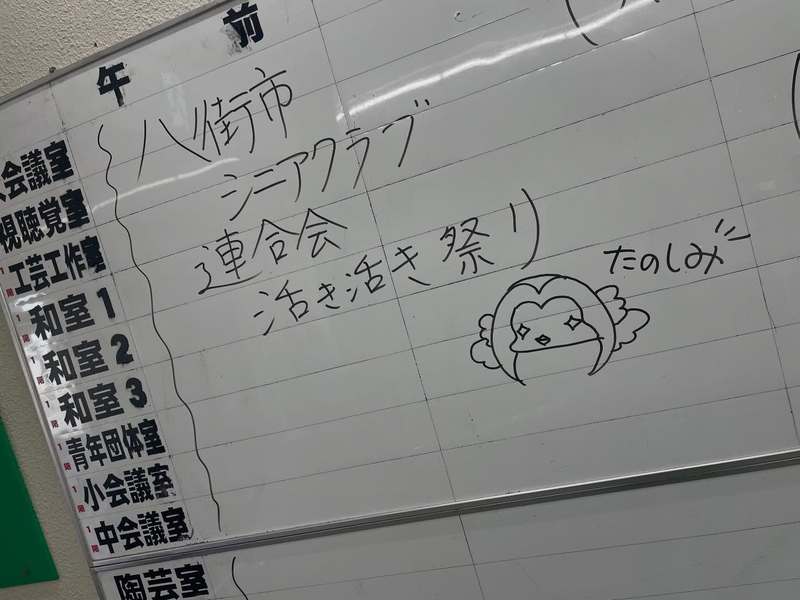 午前
八街市
シニアクラブ
連合会
活き活き祭り
たのしみ
会議室
視聴覚室
1階 工芸工作室
1階 和室1
1階 和室2
1階 和室3
1階 青年団体室
1階 小会議室
1階 中会議室
陶芸室